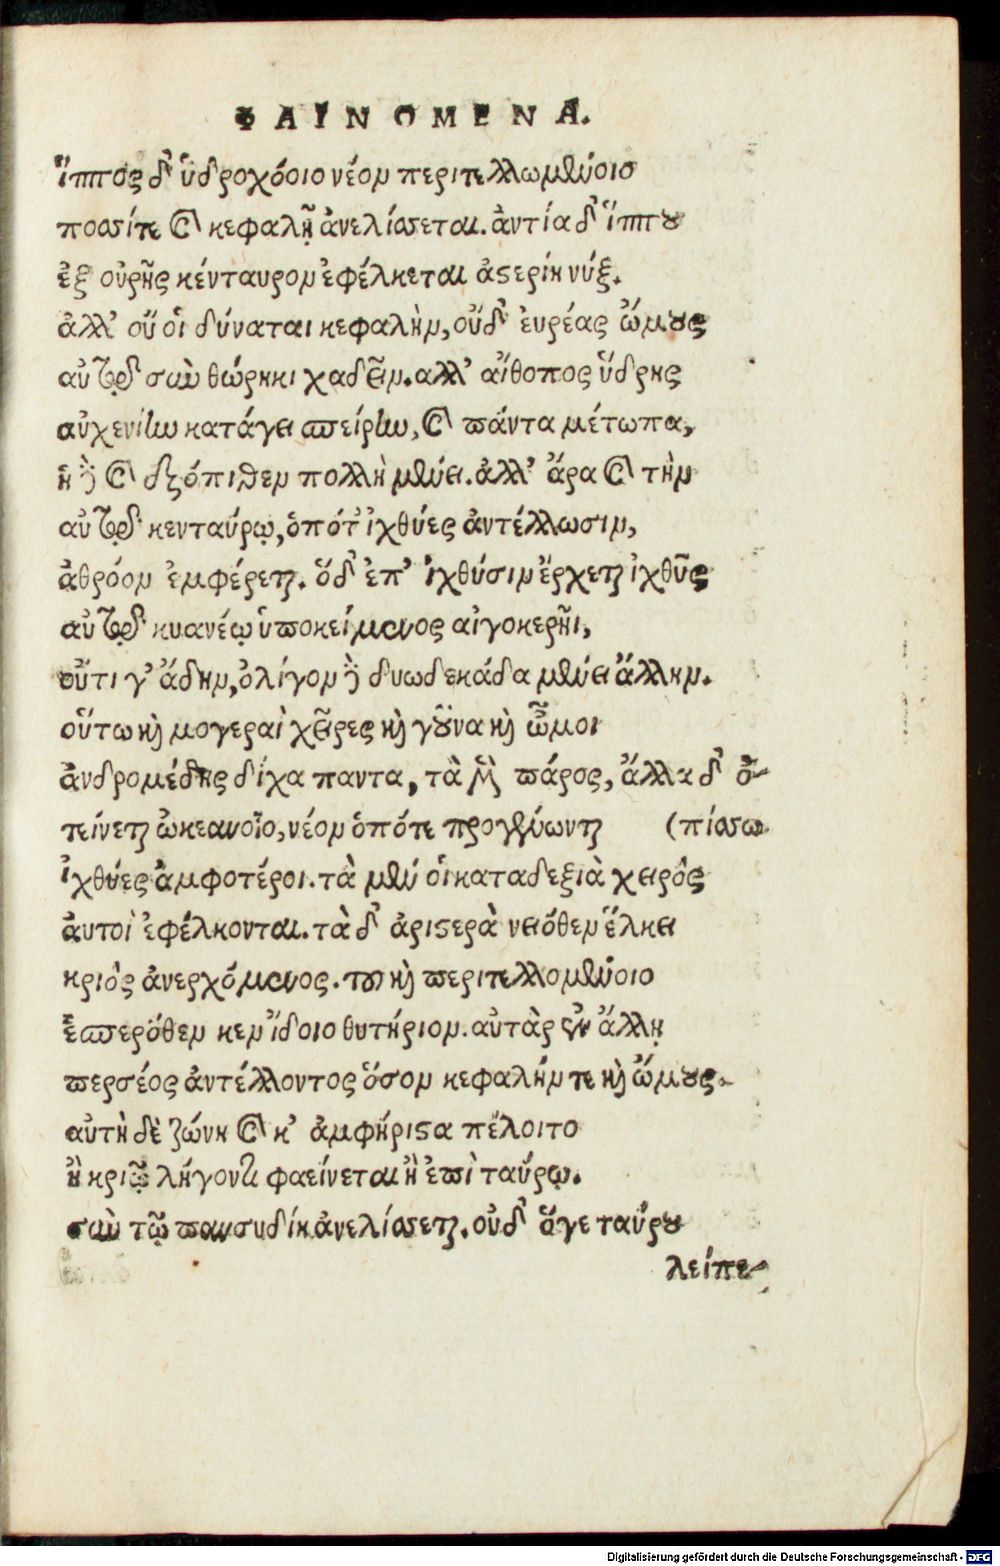 ΦΑΙΝΟΜΕΝΑ.
ἵππος δ' ὑδροχόοιο νέον περιτελλωμένοιο
ποσσίτε καὶ κεφαλῇ ἀνελίσσεται. ἀντία δ' ἵππου
ἐξ οὐρῆς κένταυρον ἐφέλκεται ἀστερίη νύξ.
ἀλλ' οὔ οἱ δύναται κεφαλὴν, οὐδ' εὐρέας ὤμους
αὐτῷ σὺν θώρηκι χαδεῖν. ἀλλ' αἴθοπος ὕδρης
αὐχενίην κατάγει σπείρην, καὶ πάντα μέτωπα,
ἡ δὲ καὶ ἐξόπιθεν πολλὴ μένει. ἀλλ' ἄρα καὶ τὴν
αὐτῷ κενταύρῳ, ὁπότ' ἰχθύες ἀντέλλωσιν,
ἀθρόον ἐμφέρεται. ὅδ' ἐπ' ἰχθύσιν ἔρχεται ἰχθῦς
αὐτῷ κυανέῳ ὑποκείμενος αἰγοκερῆι,
οὔτι γ' ἄδην, ὀλίγον δὲ δυωδεκάδα μένει ἄλλην.
οὕτω καὶ μογεραὶ χεῖρες καὶ γοῦνα καὶ ὦμοι
ἀνδρομέδης δίχα παντα, τὰ μὲν πάρος, ἄλλα δ' ὀ-
τείνεται ὠκεανοῖο, νέον ὁπότε προγένωνται (πίσσω
ἰχθύες ἀμφοτέροι. τὰ μέν οἱ κατα δεξιὰ χειρὸς
ἀυτοὶ ἐφέλκονται. τὰ δ' ἀριστερὰ νειόθεν ἕλκει
κριὸς ἀνερχόμενος. τοῦ καὶ περιτελλομένοιο
ἑσπερόθεν κεν ἴδοιο θυτήριον. αὐτὰρ ἐν ἄλλῃ
περσέος ἀντέλλοντος ὅσον κεφαλήν τε καὶ ὤμους.
αὐτὴ δὲ ζώνη καὶ κ' ἀμφήριστα πέλοιτο
ἢ κριῷ λήγοντι φαείνεται ἢ ἐπὶ ταύρῳ.
σὺν τῷ πανσυδίη ἀνελίσσεται. οὐδ' ὅγε ταύρου
λείπε-
Digitalisierung gefördert durch die Deutsche Forschungsgemeinschaft - DFG